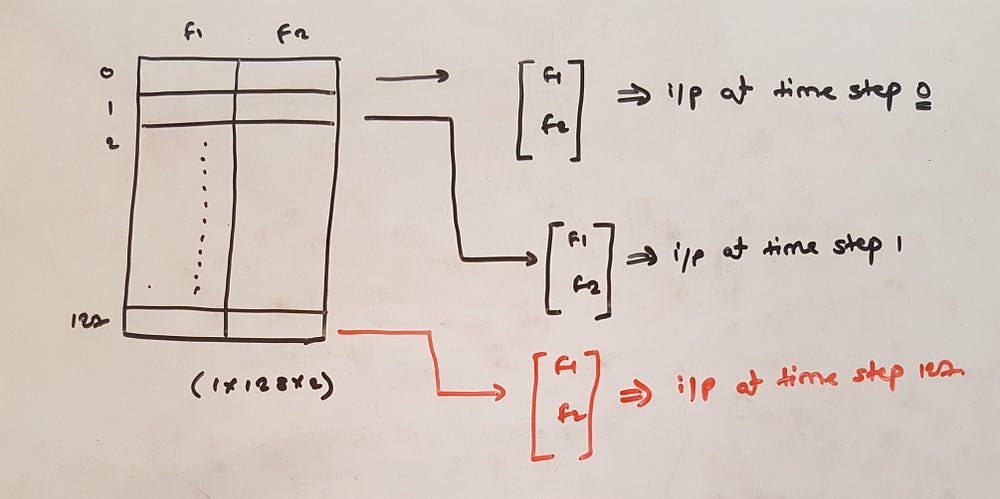 F1 F2
0
1
2
127
(1×128×2)
[F1 F2] ⇒ i/p at time step 0
[F1 F2] ⇒ i/p at time step 1
[F1 F2] ⇒ i/p at time step 127.